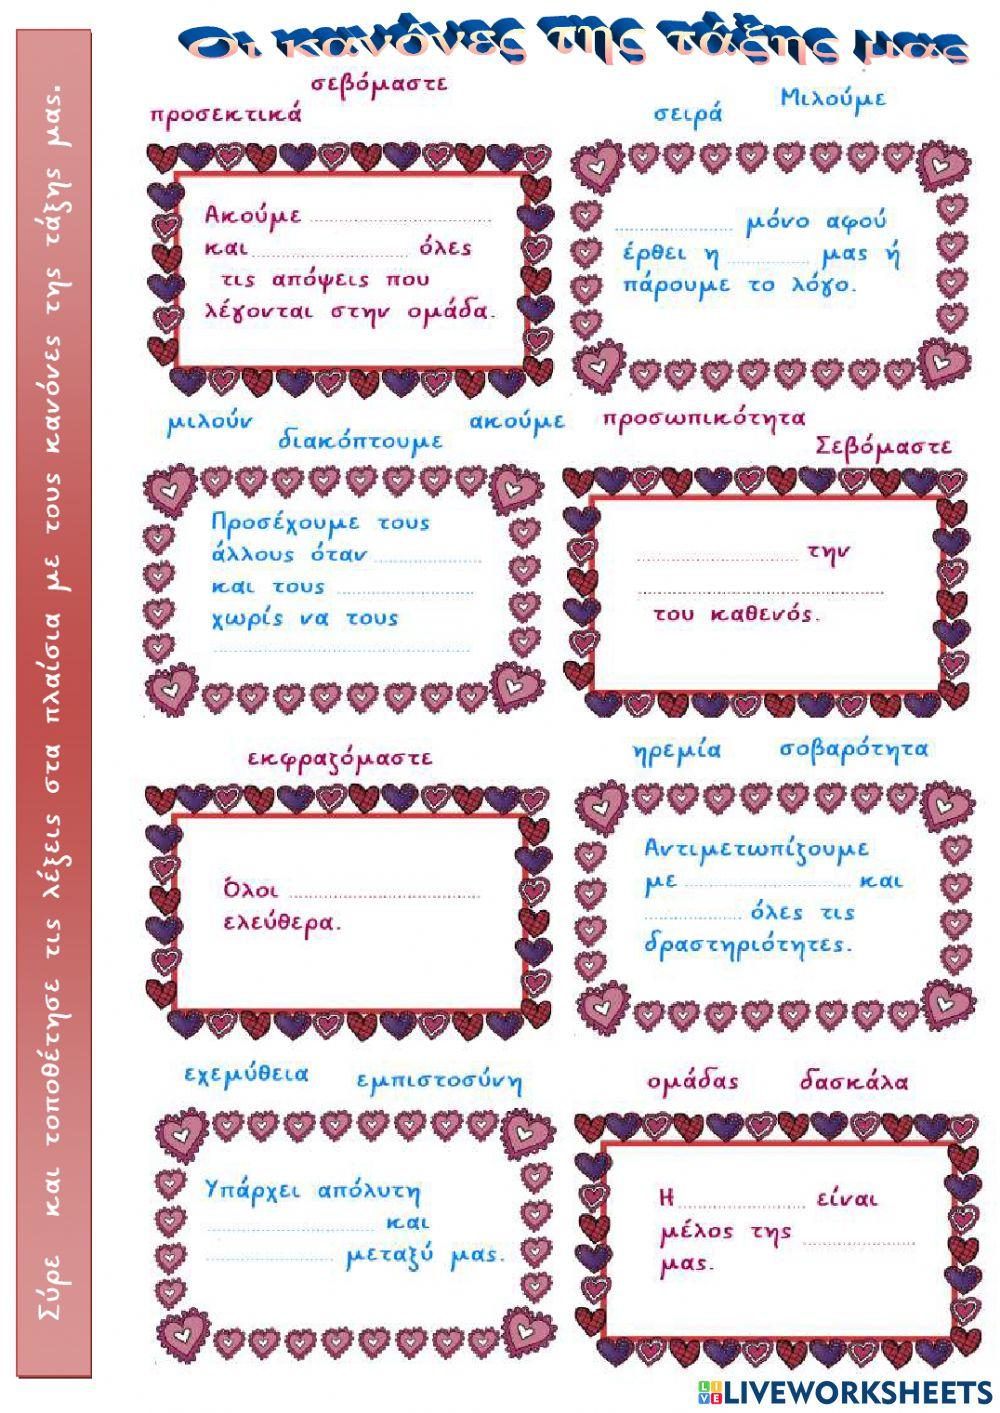 Οι κανόνες της τάξης μας
Σύρε και τοποθέτησε τις λέξεις στα πλαίσια με τους κανόνες της τάξης μας.
σεβόμαστε
προσεκτικά
Ακούμε
και όλες
τις απόψεις που
λέγονται στην ομάδα.
Μιλούμε
σειρά
μόνο αφού
έρθει η μας ή
πάρουμε το λόγο.
μιλούν
διακόπτουμε
ακούμε
Προσέχουμε τους
άλλους όταν
και τους
χωρίς να τους
προσωπικότητα
Σεβόμαστε
την
του καθενός.
εκφραζόμαστε
Όλοι
ελεύθερα.
ηρεμία
σοβαρότητα
Αντιμετωπίζουμε
με και
όλες τις
δραστηριότητες.
εχεμύθεια
εμπιστοσύνη
Υπάρχει απόλυτη
και
μεταξύ μας.
ομάδας
δασκάλα
Η είναι
μέλος της
μας.
LIVEWORKSHEETS